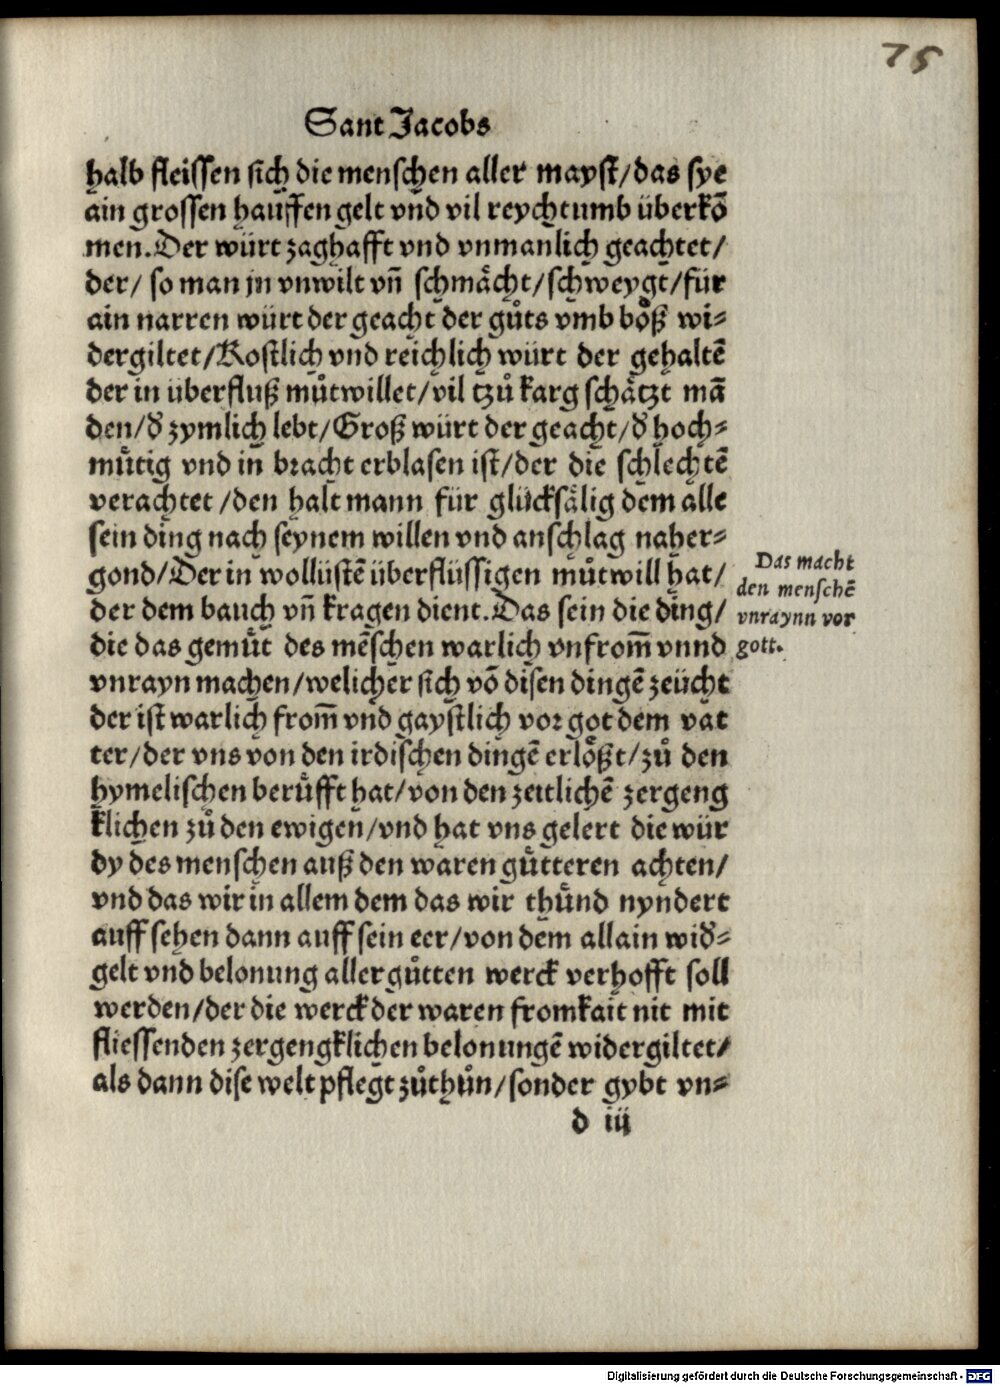 75
Sant Jacobs
halb fleissen sich die menschen aller mayst/das sye
ain grossen hauffen gelt vnd vil reychtumb überkõ
men.Der würt zaghafft vnd vnmanlich geachtet/
der/ so man jn vnwilt vñ schmaͤcht/schweygt/für
ain narren würt der geacht der guͦts vmb boͤß wi⸗
dergiltet/Kostlich vnd reichlich würt der gehaltẽ
der in überfluß muͦtwillet/vil tzuͦ karg schaͤtzt mã
den/d̕ zymlich lebt/Groß würt der geacht/d̕ hoch⸗
muͤtig vnd in bracht erblasen ist/der die schlechtẽ
verachtet /den halt mann für glücksaͤlig dem alle
sein ding nach seynem willen vnd anschlag naher⸗
gond/Der in wollüstẽ überflüssigen muͦtwill hat/
der dem bauch vñ kragen dient.Das sein die ding/
die das gemuͤt des mẽschen warlich vnfrom̃ vnnd
vnrayn machen/welicher sich võ disen dingẽ zeücht
der ist warlich from̃ vnd gaystlich vor got dem vat
ter/der vns von den irdischen dingẽ erloͤßt/zuͦ den
hymelischen beruͤfft hat/von den zeitlichẽ zergeng
klichen zuͦ den ewigen/vnd hat vns gelert die wür
dy des menschen auß den waren guͤtteren achten/
vnd das wir in allem dem das wir thuͤnd nyndert
auff sehen dann auff sein eer/von dem allain wid̕⸗
gelt vnd belonung aller guͤtten werck verhofft soll
werden/der die werck der waren fromkait nit mit
fliessenden zergengklichen belonungẽ widergiltet/
als dann dise welt pflegt zuͦthuͦn/sonder gybt vn⸗
d iij
Das macht
den menschẽ
vnraynn vor
gott.
Digitalisierung gefördert durch die Deutsche Forschungsgemeinschaft - DFG